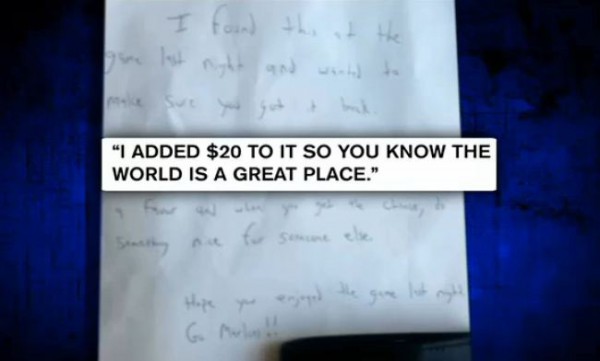 I found this at the
game last night and wanted to
make sure you got it back.
“I ADDED $20 TO IT SO YOU KNOW THE
WORLD IS A GREAT PLACE.”
a favor and when you get the chance, do
something nice for someone else
Hope you enjoyed the game last night
Go Marlins!!